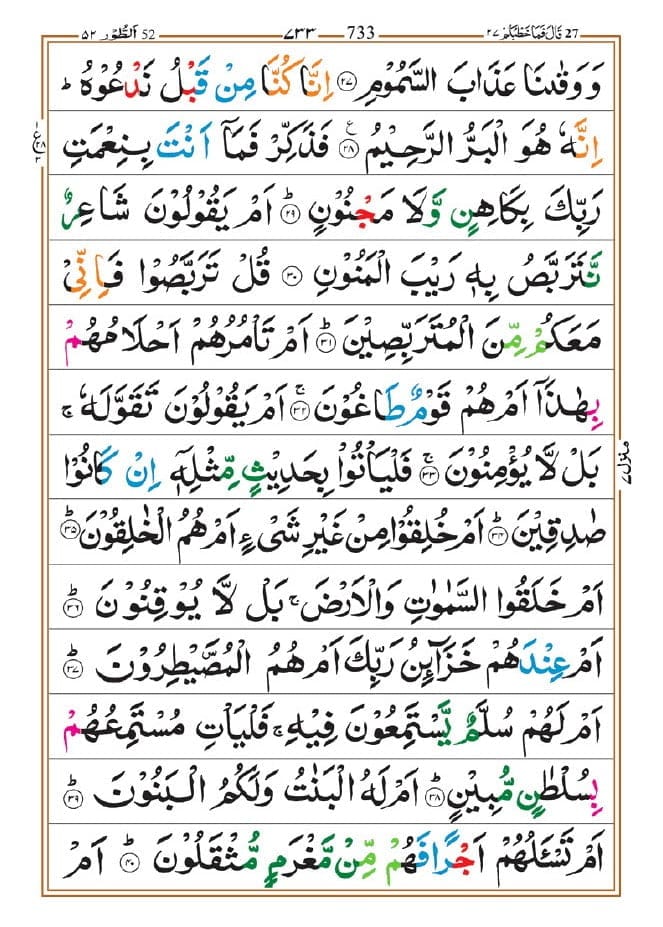 27 قَالَ فَمَا خَطْبُكُمْ ٢٧ 733 ٧٣٣ 52 اَلطُّوْر ٥٢
وَ وَقٰىنَا عَذَابَ السَّمُوْمِ ۝٢٧ اِنَّا كُنَّا مِنْ قَبْلُ نَدْعُوْهُ ؕ
اِنَّهٗ هُوَ الْبَرُّ الرَّحِيْمُ ۝٢٨ ع فَذَكِّرْ فَمَاۤ اَنْتَ بِنِعْمَتِ
رَبِّكَ بِكَاهِنٍ وَّلَا مَجْنُوْنٍ ؕ۝٢٩ اَمْ يَقُوْلُوْنَ شَاعِرٌ
نَّتَرَبَّصُ بِهٖ رَيْبَ الْمَنُوْنِ ۝٣٠ قُلْ تَرَبَّصُوْا فَاِنِّىْ
مَعَكُمْ مِّنَ الْمُتَرَبِّصِيْنَ ؕ۝٣١ اَمْ تَاْمُرُهُمْ اَحْلَامُهُمْ
بِهٰذَاۤ اَمْ هُمْ قَوْمٌ طَاغُوْنَ ۚ۝٣٢ اَمْ يَقُوْلُوْنَ تَقَوَّلَهٗ ۚ
بَلْ لَّا يُؤْمِنُوْنَ ۚ۝٣٣ فَلْيَاْتُوْا بِحَدِيْثٍ مِّثْلِهٖۤ اِنْ كَانُوْا
صٰدِقِيْنَ ؕ۝٣٤ اَمْ خُلِقُوْا مِنْ غَيْرِ شَىْءٍ اَمْ هُمُ الْخٰلِقُوْنَ ؕ۝٣٥
اَمْ خَلَقُوا السَّمٰوٰتِ وَالْاَرْضَ ۚ بَلْ لَّا يُوْقِنُوْنَ ؕ۝٣٦
اَمْ عِنْدَهُمْ خَزَآئِنُ رَبِّكَ اَمْ هُمُ الْمُصَۜيْطِرُوْنَ ؕ۝٣٧
اَمْ لَهُمْ سُلَّمٌ يَّسْتَمِعُوْنَ فِيْهِ ۚ فَلْيَاْتِ مُسْتَمِعُهُمْ
بِسُلْطٰنٍ مُّبِيْنٍ ؕ۝٣٨ اَمْ لَهُ الْبَنٰتُ وَلَكُمُ الْبَنُوْنَ ؕ۝٣٩
اَمْ تَسْئَلُهُمْ اَجْرًا فَهُمْ مِّنْ مَّغْرَمٍ مُّثْقَلُوْنَ ؕ۝٤٠ اَمْ
منزل ٧